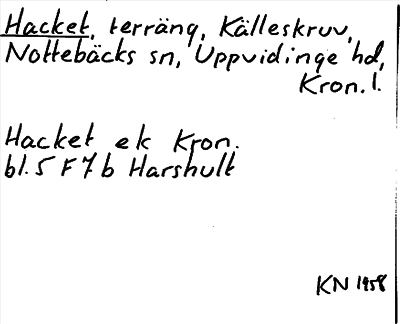 Hacket, terräng, Källeskruv,
Nottebäcks sn, Uppvidinge hd,
Kron. l.
Hacket ek Kron.
bl. 5 F 7 b Harshult
KN 1958